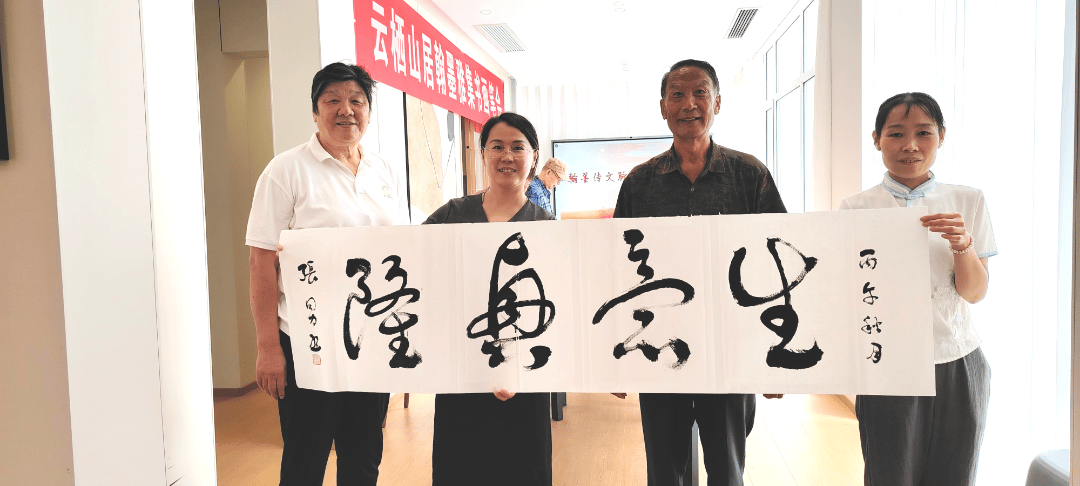 云栖山居翰墨雅集书画笔会
翰墨传文脉
丙午秋月
生意興隆
張同力书